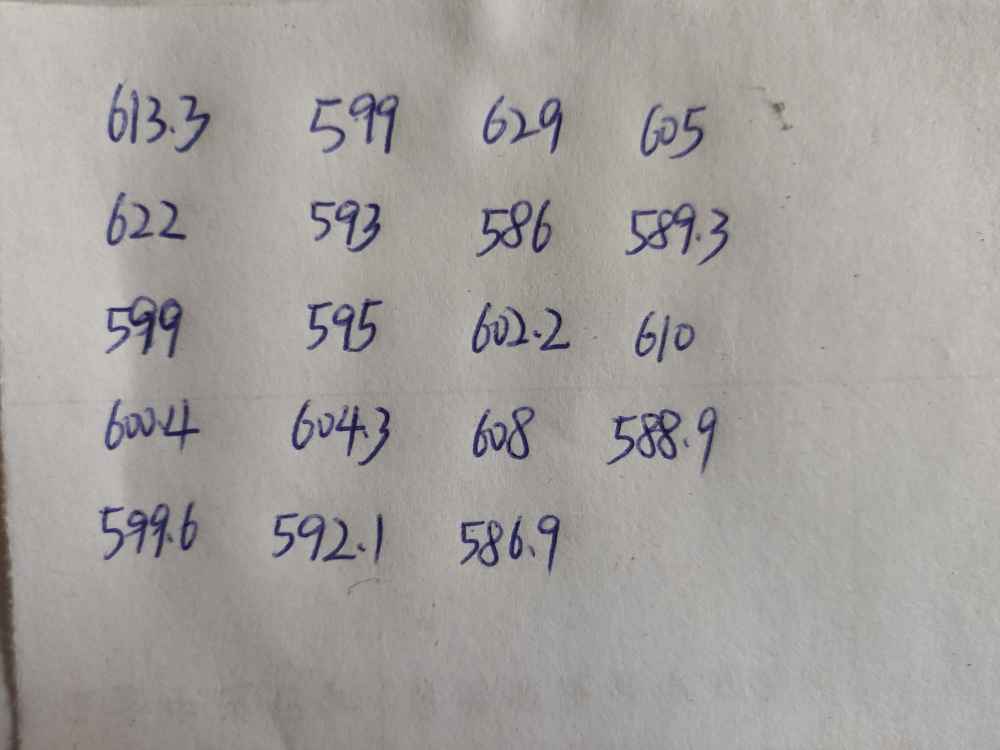 613.3 599 629 605
622 593 586 589.3
599 595 602.2 610
600.4 604.3 608 588.9
599.6 592.1 586.9